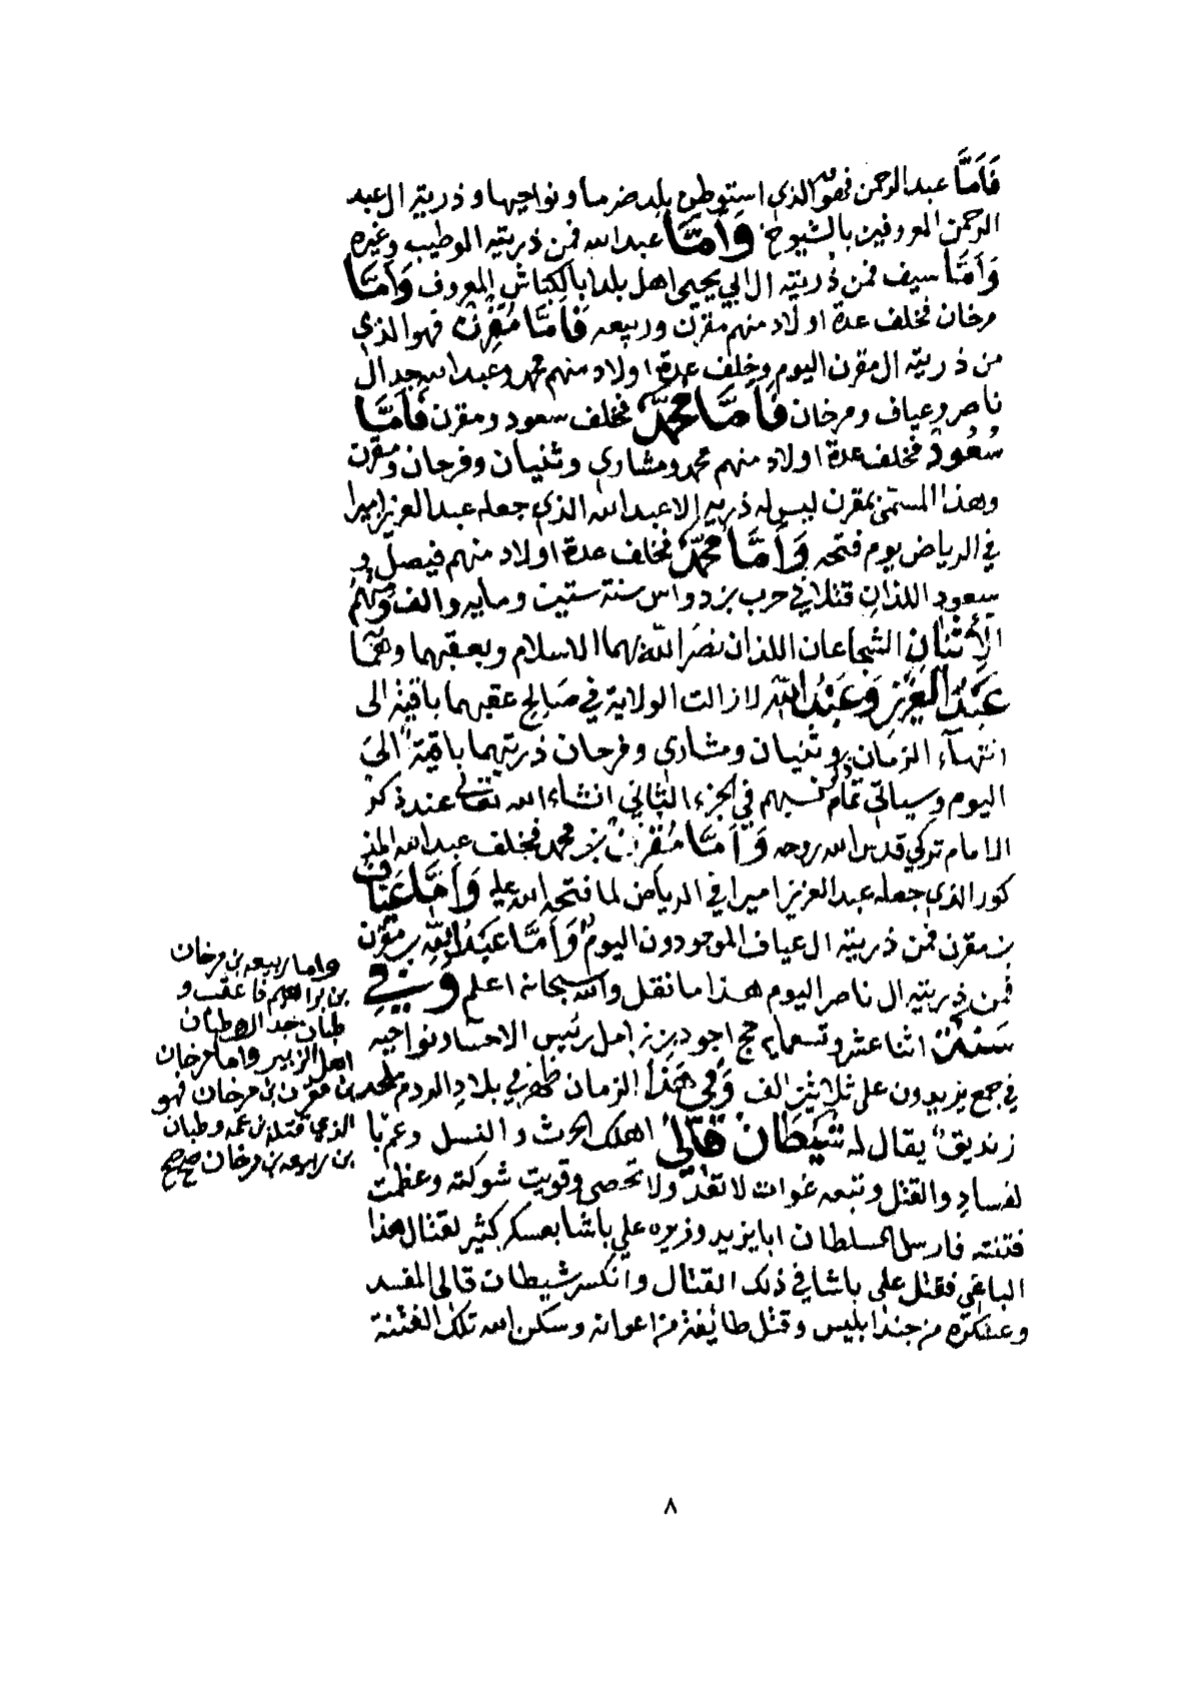 فَاَمَّا عبد الرحمن فهو الذي استوطن بلد ضرما ونواحيها وذريته ال عبد
الرحمن المعروفين بالشيوخ وَاَمَّا عبد الله فمن ذريته الوطيب وغيره
وَاَمَّا سيف فمن ذريته ال ابي يحيى اهل بلد ابا الكباش المعروف وَاَمَّا
مرخان فخلف عدة اولاد منهم مقرن وربيعه فَاَمَّا مُقرِن فهو الذي
من ذريته ال مقرن اليوم وخلف عدة اولاد منهم محمد وعبد الله جد ال
ناصر وعياف ومرخان فَاَمَّا مُحَمَّدٌ فخلف سعود ومقرن فَاَمَّا
سُعُود فخلف عدة اولاد منهم محمد ومشاري وثنيان وفرحان ومقرن
وهذا المسمّى بمقرن ليس له ذريه الا عبد الله الذي جعله عبد العزيز اميرا
في الرياض يوم فتحه وَاَمَّا مُحَمَّدٌ فخلف عدة اولاد منهم فيصل و
سعود اللذانِ قتلا في حرب بن دواس سنة ستين ومايه والف ومنهمُ
الأِثْنَانِ الشجاعان اللذان نصَر اللّه بهما الاسلام وبعقبهما وهُمَا
عَبْدُ العَزِيْزِ وَعَبْدُ اللّه لا زالت الولاية في صَالِحِ عقبهما باقية الى
انتهآء الزمان وثنيان ومشاري وفرحان ذريتهما باقيةً الىَ
اليوم وسياتي تمام نسبهم في الجزء الثاني انشاء الله تعالى عند ذكر
الامام تركي قدس الله روحه وَاَمَّا مُقرِن بن محمد فخلف عبد الله المذ
كور الذي جعله عبد العزيز اميرا في الرياض لما فتحه الله عليه وَاَمَّا عَيَاف
بن مقرن فمن ذريته ال عياف الموجودون اليوم وَاَمَّا عَبْدُ اللّهِ بن مقرن
فمن ذريته ال ناصر اليوم هذا ما نقل والله سبحانه اعلم وَفِي
سَنَة اثنا عشر وتسعمايه حج اجود بن زامل رئيس الاحساء ونواحيه
في جمع يزيدون على ثلاثين الف وَفِي هَذَا الزمان ظهر في بلادِ الروم ملحد
زنديقٌ يقال له شَيْطَان قَالِي اهلك الحرث والنسل وعم با
لفسادِ والقتل وتبعه غوات لا تعدّ ولا تحصى وقويت شوكته وعظمت
فتنته فارسل السلطان ابا يزيد وزيره علي باشا بعسكر كثير لقتال هذا
الباغي فقتل علي باشا في ذلك القتال وانكسر شيطان قالي المفسد
وعسكره من جند ابليس وقتل طائفة من اعوانه وسكن الله تلك الفتنة
واما ربيعه بن مرخان
بن ابراهيم فاعقب و
طبان جد ال وطبان
اهل الزبير واما مرخان
بن مقرن بن مرخان فهو
الذي قتله بن عمه وطبان
بن ربيعه بن مرخان صح صح
٨